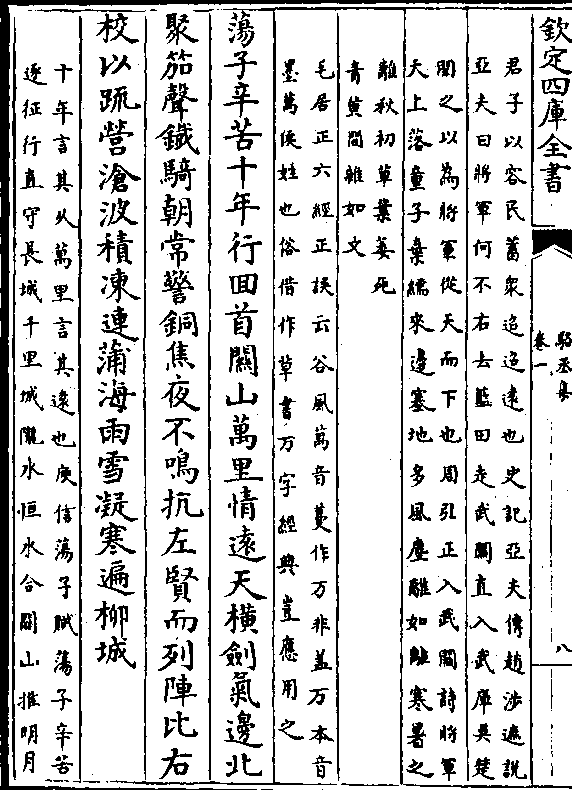 欽定四庫全書
駱丞集
卷一
八
君子以容民蓄衆迢迢遠也史記亞夫傳趙涉遮說
亞夫曰將軍何不右去藍田走武關直入武庫吳楚
聞之以為將軍從天而下也周引正入武關詩將軍
天上落童子棄繻來邊塞地多風塵離如離寒暑之
離秋初草葉萎死
青黃間雜如文
毛居正六經正誤云谷風萬音蔓作万非盖万本音
墨萬俟姓也俗借作草書万字經典豈應用之
蕩子辛苦十年行回首關山萬里情遠天橫劍氣邊北
聚笳聲鐵騎朝常警銅焦夜不鳴抗左賢而列陣比右
校以疏營滄波積凍連蒲海雨雪凝寒遍柳城
十年言其乆萬里言其逺也庾信蕩子賦蕩子辛苦
逐征行直守長城千里城隴水恒水合關山推明月